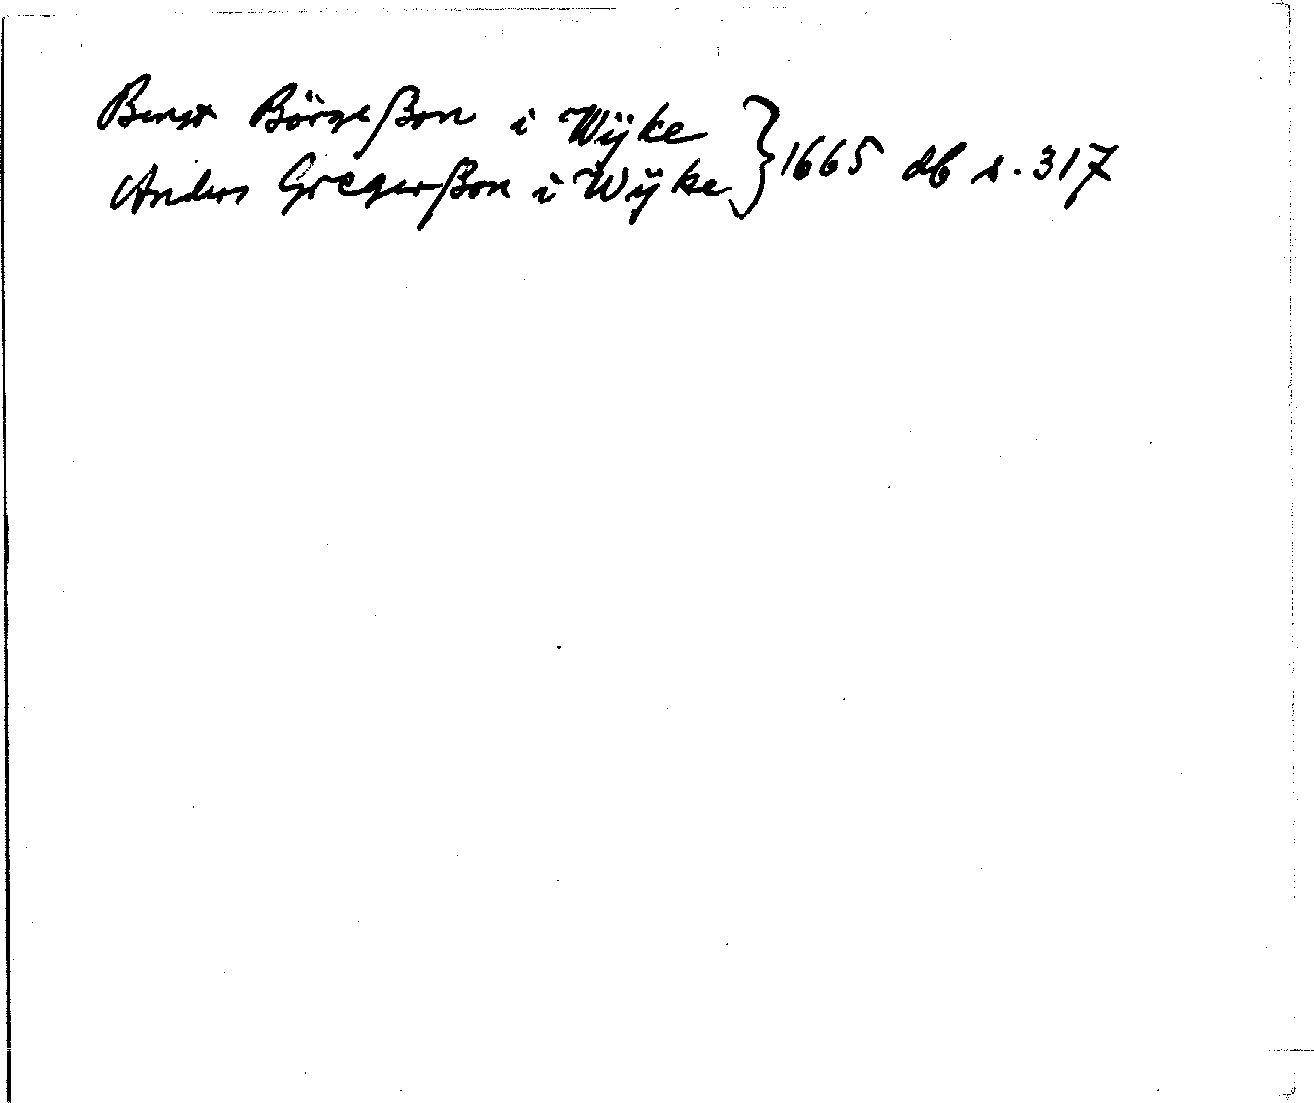 Bengt Börgeßon i Wÿke
Anders Gregerßon i Wÿke } 1665 db s. 317